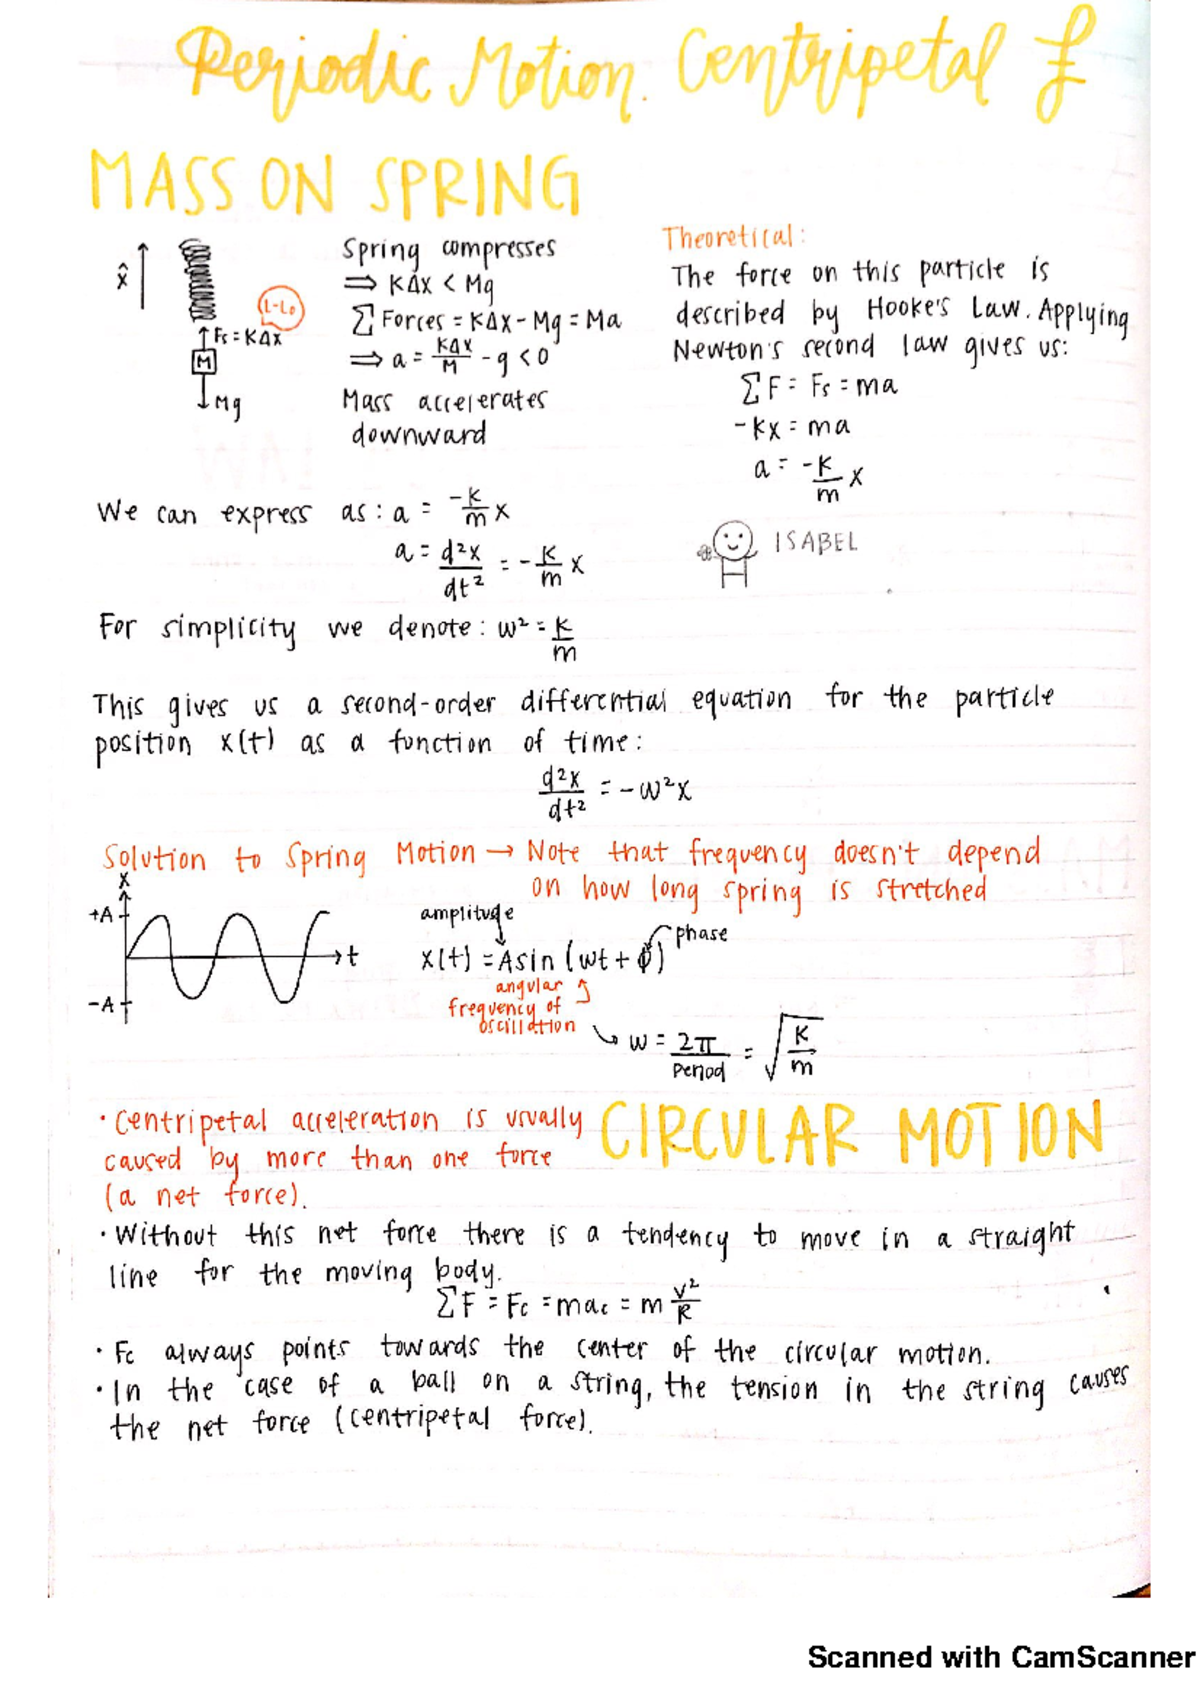 Periodic Motion. Centripetal F
MASS ON SPRING
x̂
L-L₀
Fs = KΔx
M
Mg
Spring compresses
⇒ KΔx < Mg
∑ Forces = KΔx - Mg = Ma
⇒ a = KΔx/M - g < 0
Mass accelerates
downward
Theoretical:
The force on this particle is
described by Hooke's Law. Applying
Newton's second law gives us:
∑F = Fs = ma
-kx = ma
a = -k/m x
We can express as: a = -k/m x
a = d²x/dt² = -k/m x
ISABEL
For simplicity we denote: w² = k/m
This gives us a second-order differential equation for the particle
position x(t) as a function of time:
d²x/dt² = -w²x
Solution to Spring Motion → Note that frequency doesn't depend
on how long spring is stretched
x
+A
-A
t
amplitude
phase
x(t) = Asin (wt + φ)
angular
frequency of
oscillation
w = 2π/Period = √k/m
CIRCULAR MOTION
· Centripetal acceleration is usually
caused by more than one force
(a net force).
· Without this net force there is a tendency to move in a straight
line for the moving body.
∑F = Fc = mac = m v²/R
· Fc always points towards the center of the circular motion.
· In the case of a ball on a string, the tension in the string causes
the net force (centripetal force).
Scanned with CamScanner